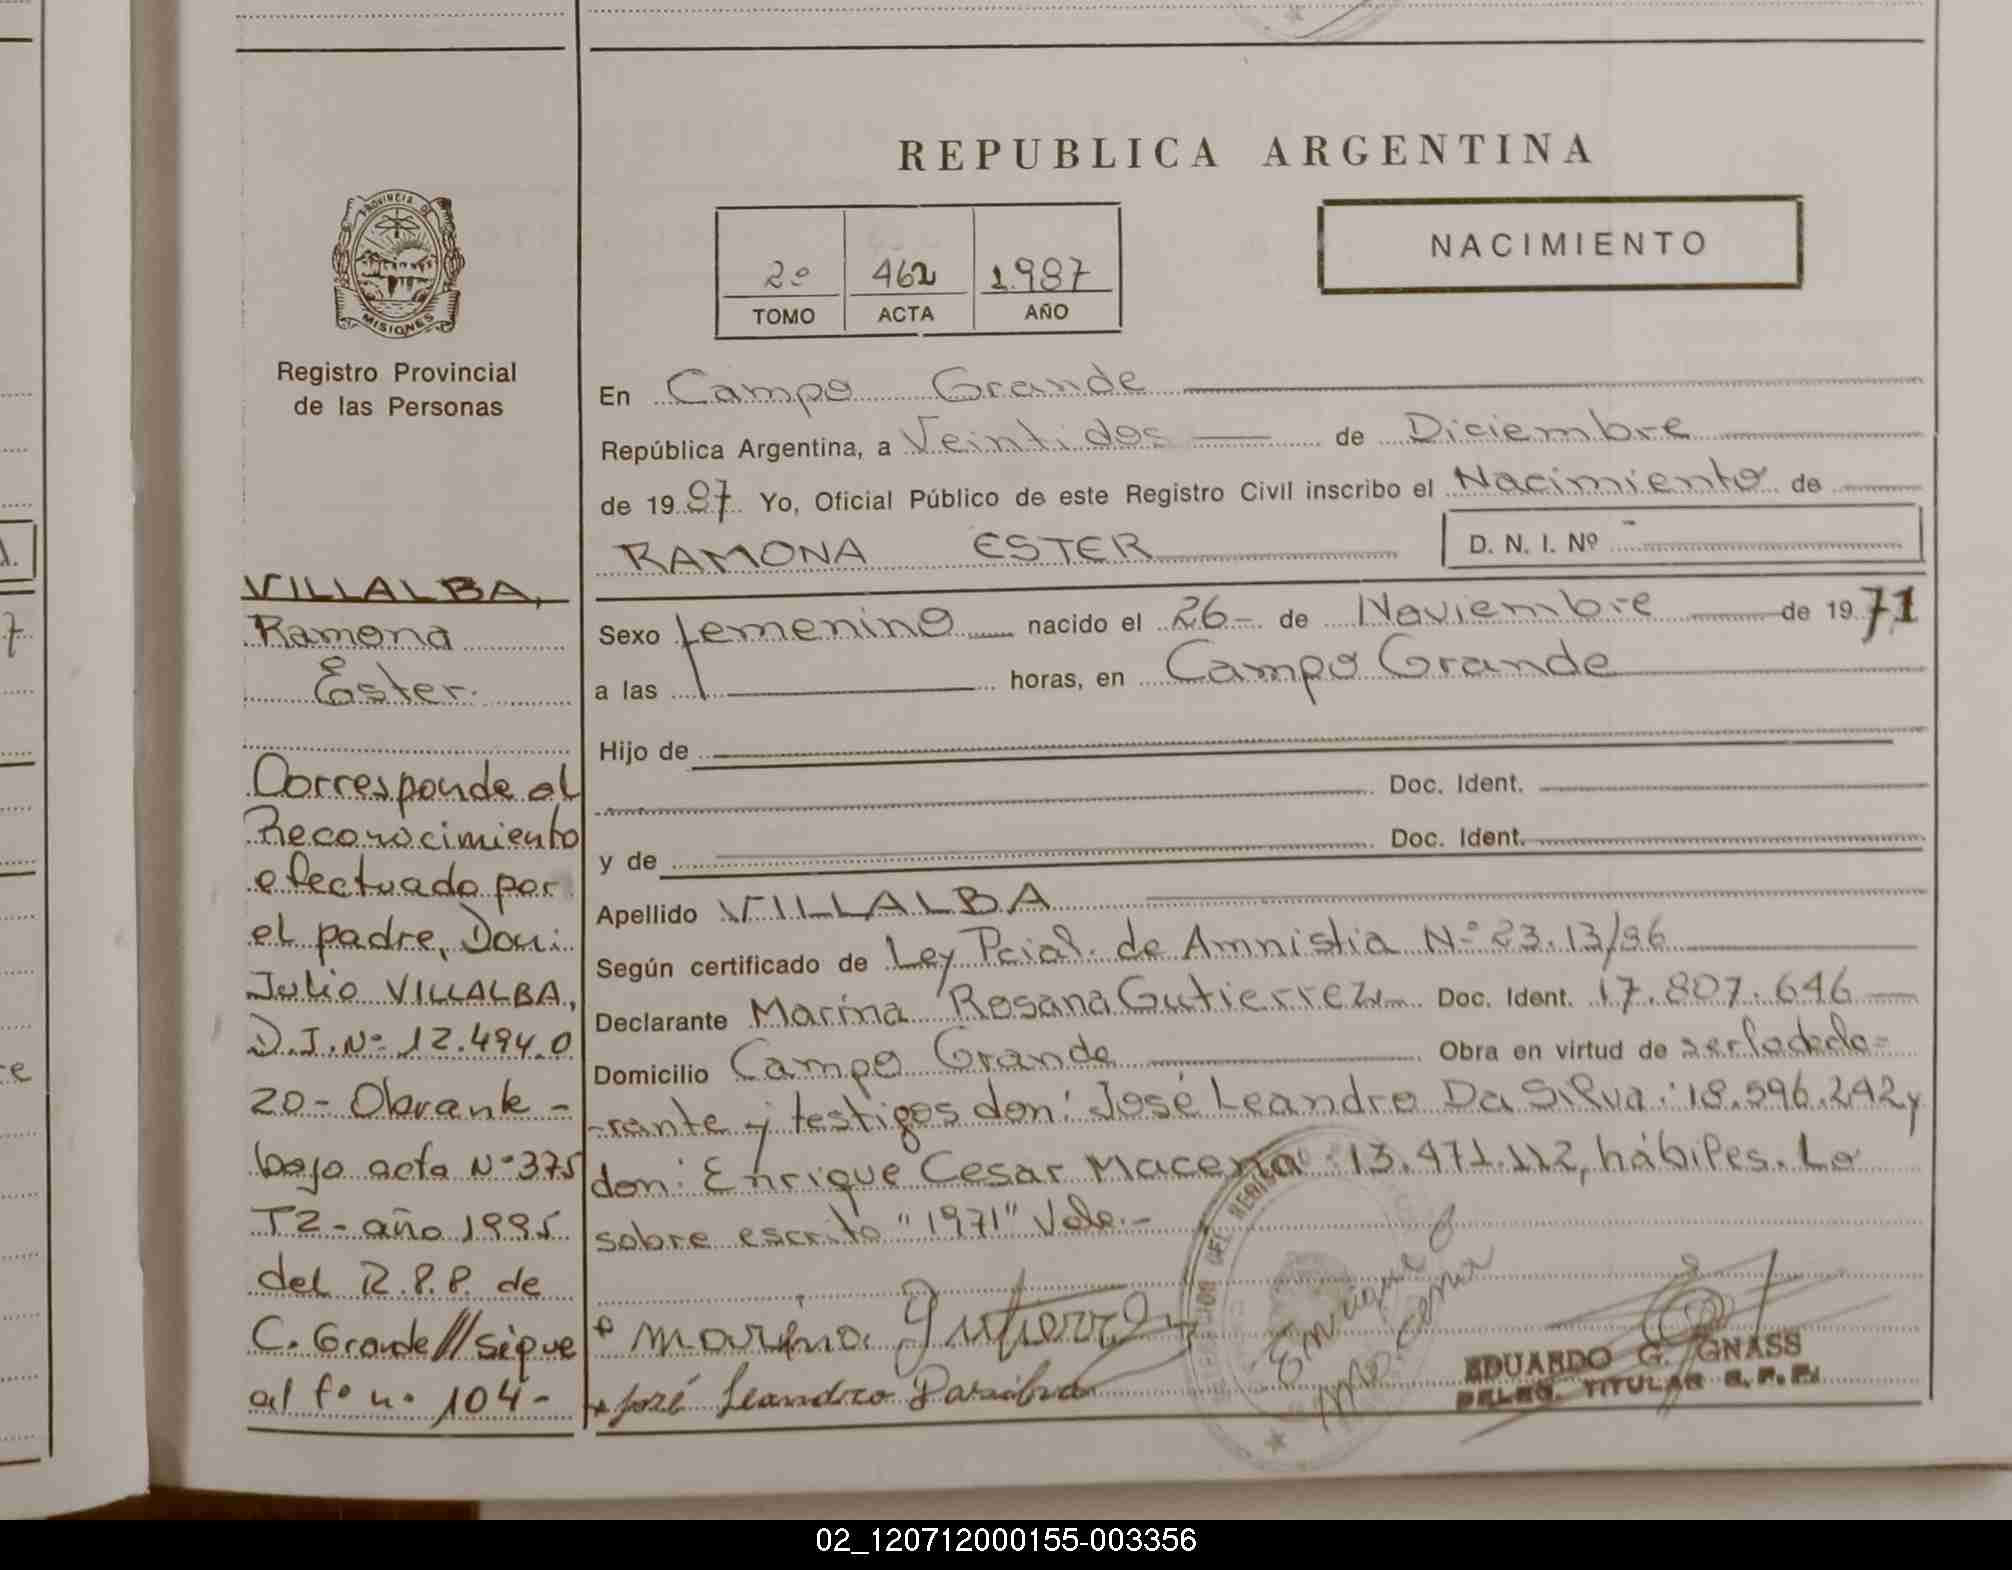 REPUBLICA ARGENTINA
NACIMIENTO
2º 462 1.987
TOMO ACTA AÑO
PROVINCIA DE
MISIONES
Registro Provincial
de las Personas
VILLALBA,
Ramona
Ester.
Corresponde al
Reconocimiento
efectuado por
el padre, Don:
Julio VILLALBA,
D.I.Nº 12.494.0
20- Obrante -
bajo acta Nº 375
T2- año 1995
del R.P.P. de
C. Grande // sigue
al fº nº 104-
En Campo Grande
República Argentina, a Veintidos de Diciembre
de 1987 Yo, Oficial Público de este Registro Civil inscribo el Nacimiento de
RAMONA ESTER
D. N. I. Nº -
Sexo femenino nacido el 26- de Noviembre de 1971
a las horas, en Campo Grande
Hijo de
Doc. Ident.
y de Doc. Ident.
Apellido VILLALBA
Según certificado de Ley Pcial. de Amnistia Nº 23.13/86
Declarante Marina Rosana Gutierrez Doc. Ident. 17.807.646
Domicilio Campo Grande Obra en virtud de ser la decla-
-rante y testigos don: José Leandro Da Silva: 18.596.242 y
don: Enrique Cesar Macena: 13.471.112, hábiles. Lo
sobre escrito "1971" Vale.-
+ marina. Gutierrez
+ José Leandro Dasilva
Enrique C
EDUARDO G. GNASS
DELEG. TITULAR R. P. P.
02_120712000155-003356